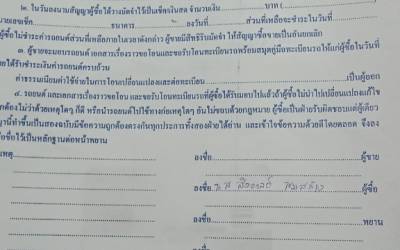 ๒. ในวันลงนามสัญญาผู้ซื้อได้วางมัดจำไว้เป็นเช็คเงินสด จำนวนเงิน บาท (
มายเลขเช็ค ธนาคาร ลงวันที่ ส่วนที่เหลือจะชำระในวันที่
ผู้ซื้อไม่ชำระค่ารถยนต์ส่วนที่เหลือภายในเวลาดังกล่าว ผู้ขายมีสิทธิริบมัดจำ ให้สัญญาซื้อขายเป็นอันยกเลิก
๓. ผู้ขายจะมอบรถยนต์ เอกสารเรื่องราวขอโอนและขอรับโอนทะเบียนรถพร้อมสมุดคู่มือทะเบียนรถให้แก่ผู้ซื้อในวันที่
ายได้รับชำระเงินค่ารถยนต์ครบถ้วน
ค่าธรรมเนียมค่าใช้จ่ายในการโอนเปลี่ยนแปลงและต่อทะเบียน เป็นผู้ออก
๔. รถยนต์ และเอกสารเรื่องราวขอโอน และขอรับโอนทะเบียนรถที่ผู้ซื้อได้รับมอบไปแล้วถ้าผู้ซื้อไม่นำไปเปลี่ยนแปลงแก้ไข
ูกต้องไม่ว่าด้วยเหตุใดๆ ก็ดี หรือนำรถยนต์ไปใช้ทางก่อเหตุใดๆ อันไม่ชอบด้วยกฎหมาย ผู้ซื้อเป็นฝ่ายรับผิดชอบแต่ผู้เดียว
ญานี้ทำขึ้นเป็นสองฉบับมีข้อความถูกต้องตรงกันทุกประการทั้งสองฝ่ายได้อ่าน และเข้าใจข้อความด้วยดีโดยตลอด จึงลง
ือชื่อไว้เป็นหลักฐานต่อหน้าพยาน
เหตุ ลงชื่อ ผู้ขาย
ลงชื่อ ผู้ซื้อ
ลงชื่อ พยาน
ลงชื่อ